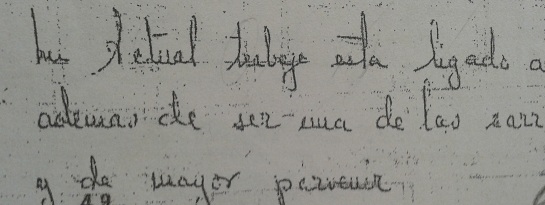 mi Actual trabajo esta ligado a
ademas de ser una de las carr
y de mayor porvenir